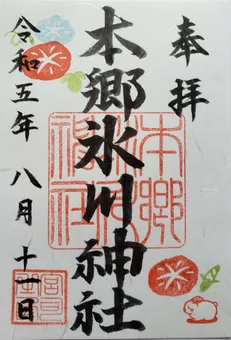 奉拝
本郷氷川神社
令和五年 八月 十一日
本郷氷川神社